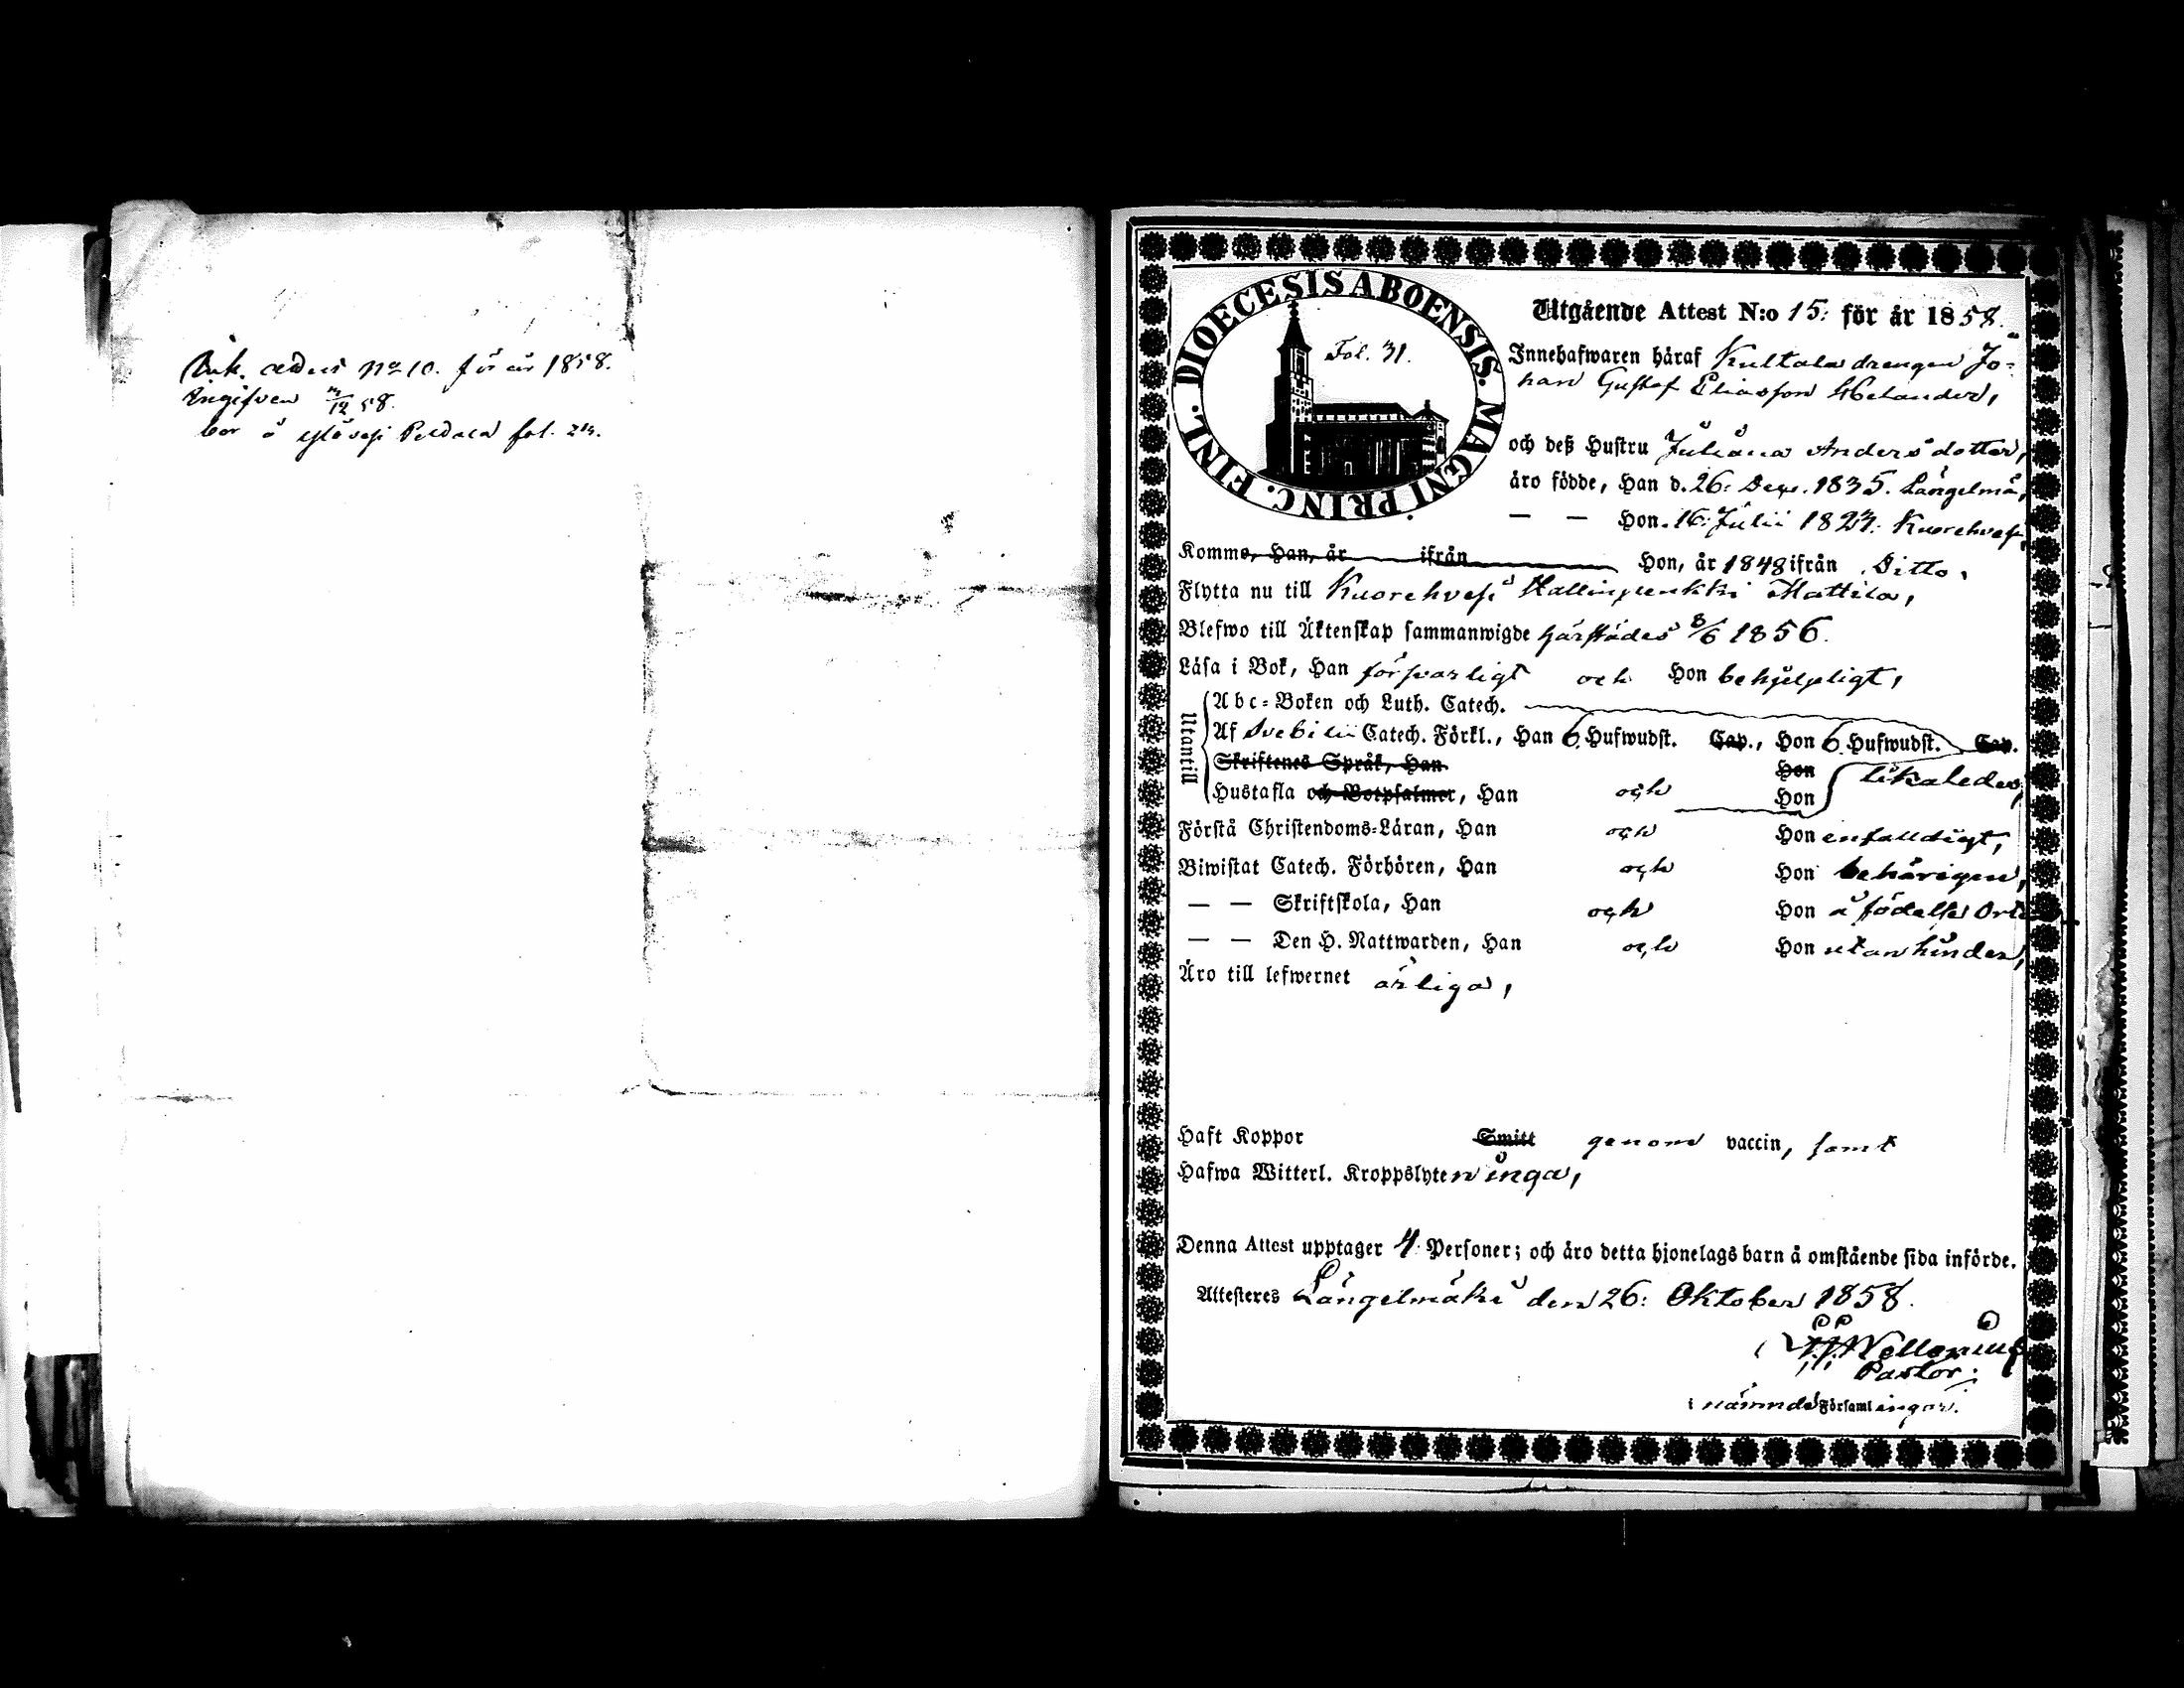 Ink. attest No 10. för år 1858.
Ingifven 58.
bor å fol.
DIOECESIS ABOENSIS. MAGNI PRINC. FINL.
Fol. 31.
Utgående Attest N:o 15: för år 1858.
Innehafwaren häraf Kultala drengen Jo-
han Gustaf Eliasson Helander,
och deß Hustru Juliana Andersdotter,
äro födde, Han d. 26: Dec. 1835. Längelmä,
— — Hon. 16: Julii 1827. Kuorehvesi,
Komme, Han, år ifrån Hon, år 1848 ifrån Ditto,
Flytta nu till Kuorehvesi Hallinpenkki Mattila,
Blefwo till Äktenskap sammanwigde härstädes 8/6 1856.
Läsa i Bok, Han försvarligt och Hon behjelpligt,
Utantill
Abc-Boken och Luth. Catech.
Af Svebilii Catech. Förkl., Han 6 Hufwudst. Cap., Hon 6 Hufwudst. Cap.
Skriftenes Språk, Han Hon likaledes,
Hustafla och Botpsalmer, Han och Hon
Förstå Christendoms-Läran, Han och Hon enfalldigt,
Biwistat Catech. Förhören, Han och Hon behörigen,
— — Skriftskola, Han och Hon å födelse Ort
— — Den H. Nattwarden, Han och Hon utan hinder,
Äro till lefwernet ärliga,
Haft Koppor Smitt genom vaccin, samt
Hafwa Witterl. Kroppslyten inga,
Denna Attest upptager 4. Personer; och äro detta hjonelags barn å omstående sida införde.
Attesteres Längelmäki den 26: Oktober 1858.
Pastor.
i nämnde Församlingar.